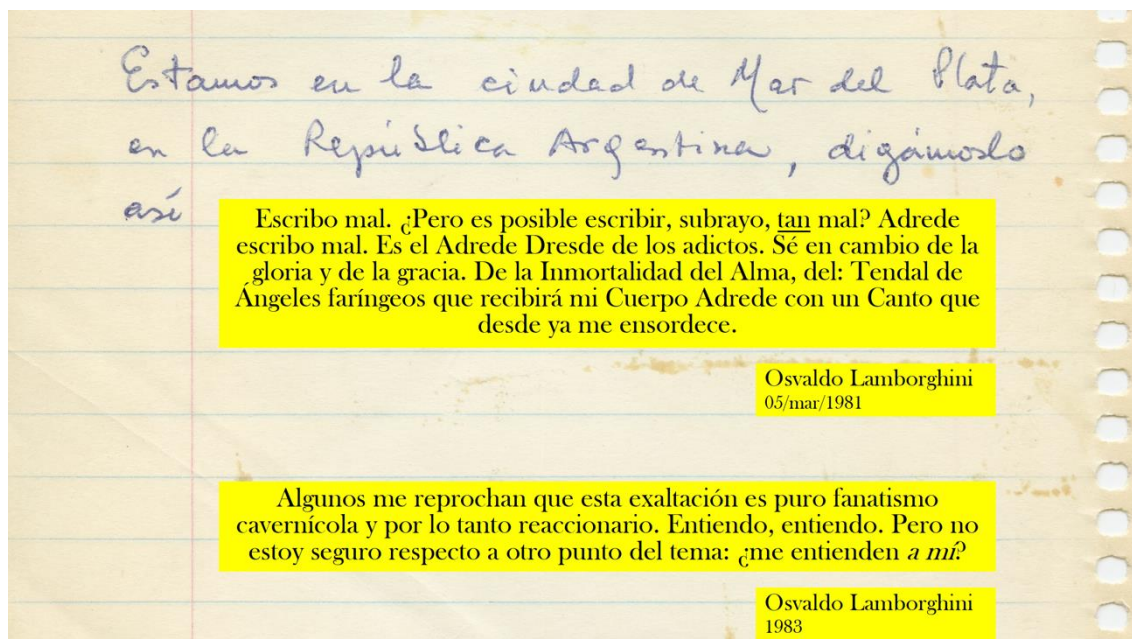 Estamos en la ciudad de Mar del Plata,
en la República Argentina, digámoslo
así
Escribo mal. ¿Pero es posible escribir, subrayo, tan mal? Adrede
escribo mal. Es el Adrede Dresde de los adictos. Sé en cambio de la
gloria y de la gracia. De la Inmortalidad del Alma, del: Tendal de
Ángeles faríngeos que recibirá mi Cuerpo Adrede con un Canto que
desde ya me ensordece.
Osvaldo Lamborghini
05/mar/1981
Algunos me reprochan que esta exaltación es puro fanatismo
cavernícola y por lo tanto reaccionario. Entiendo, entiendo. Pero no
estoy seguro respecto a otro punto del tema: ¿me entienden a mí?
Osvaldo Lamborghini
1983